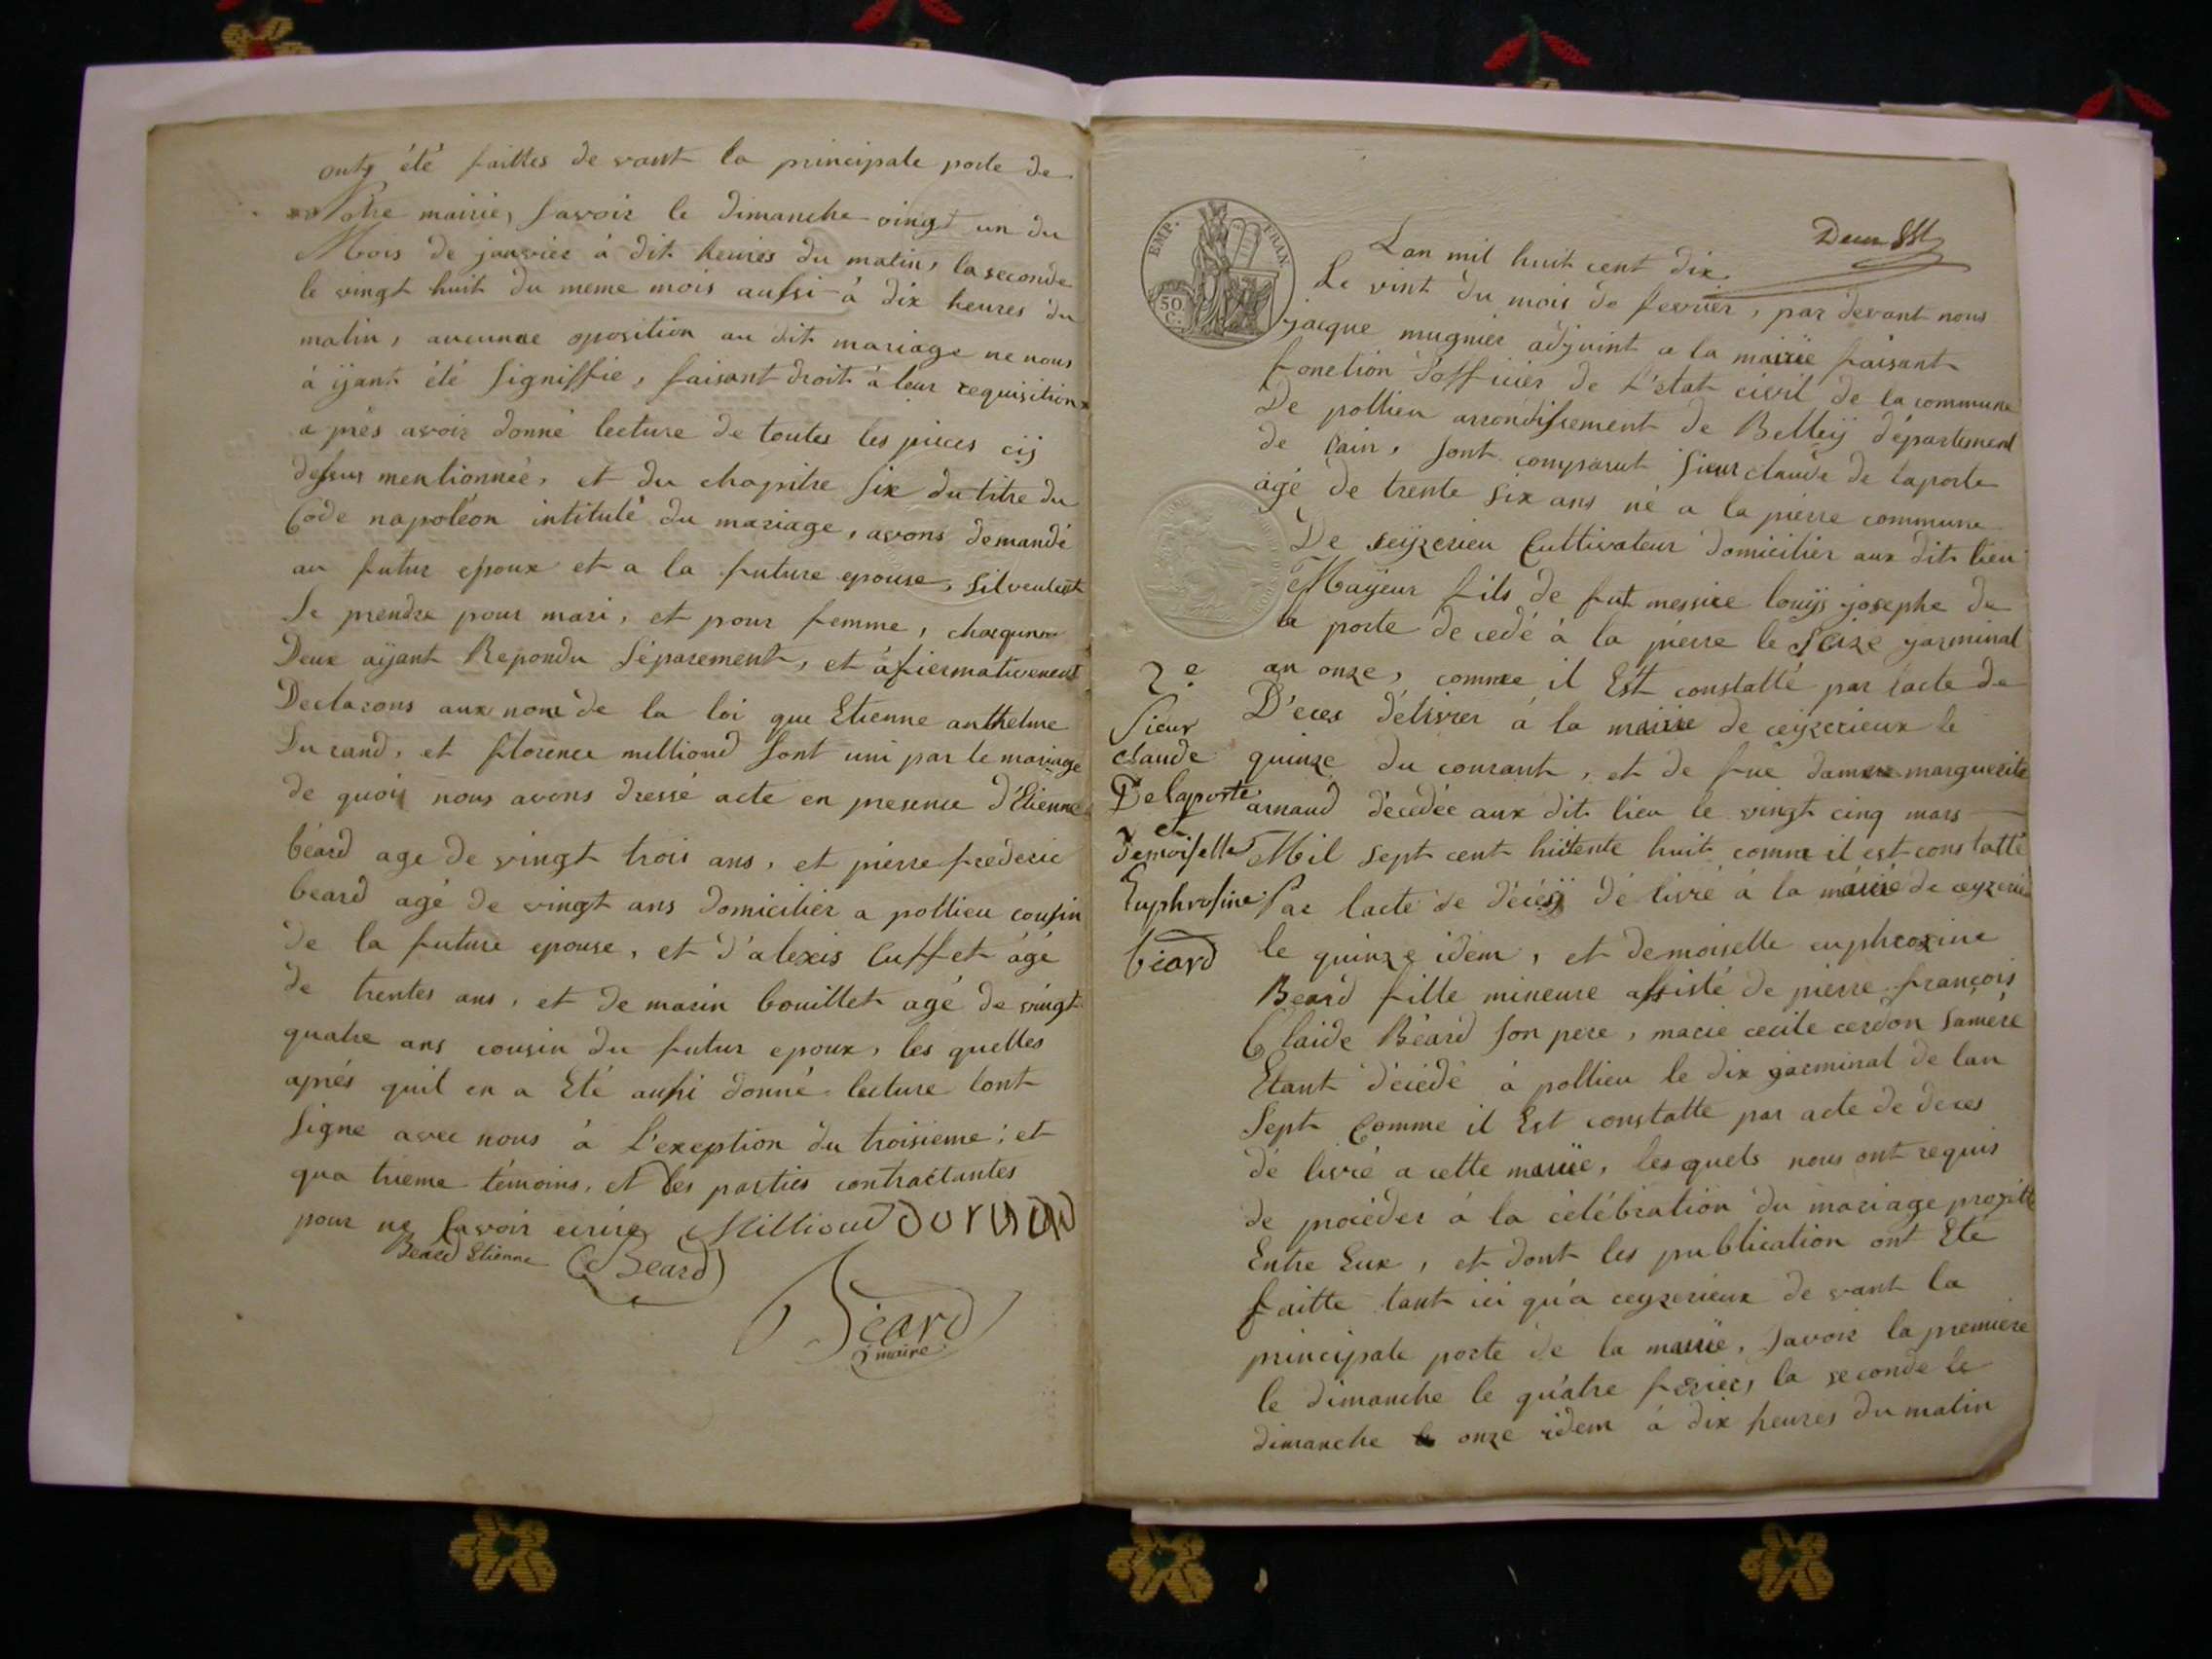 onts été faittes de vant la principale porte de
Notre mairie, savoir le dimanche vingt un du
Mois de janvier à dit heures du matin, la seconde
le vingt huit du meme mois aussi à dix heures du
matin, aucunne oposition au dit mariage ne nous
à ÿant été signiffie, faisant droit à leur requisition
a prés avoir donné lecture de toutes les pieces cij
dessus mentionnée, et du chapitre six du titre du
Code napoléon intitulé du mariage, avons demandé
au futur epoux et a la future epouse, silveulent
Se prendre pour mari, et pour femme, chacqunn
Deux aÿant Repondu Séparement, et àfiermativement
Declarons aux nom de la loi que Etienne anthelme
Durand, et florence milliond sont uni par le mariage
de quoij nous avons dressé acte en presence d'Etienne
béard age de vingt trois ans, et pierre frederic
beard agé de vingt ans domicilier a pollieu cousin
de la future epouse, et d'alexis Cuffet âgé
de trentes ans, et de marin bouillet agé de vingt
quatre ans cousin du futur epoux, les quelles
aprés quil en a Eté aussi donné lecture lont
Signe avec nous à L'exeption du troisieme; et
qua trieme témoins, et les parties contractantes
pour ne savoir ecrire Milliond Durand
Beard Etienne Beard
Béard
maire
EMP. FRAN.
50 C.
Lan mil huit cent dix
Le vint du mois de fevrier, par devant nous
jacque mugnier adjoint a la mairie faisant
fonction d'officier de L'etat civil de la commune
De pollieu arrondissement de Belleÿ département
de Lain, sont comparut Sieur claude de laporte
âgé de trente six ans né a la pierre commune
De seÿzerieu Cultivateur domicilier aux dit lieu
Mayeur fils de fut messire louijs josephe de
la porte de cedé à la pierre le seize germinal
an onze, comme il Est constatté par lacte de
D'eces délivrer à la mairie de ceÿzerieux le
quinze du courant, et de fue damme marguerite
arnaud décédée aux dit lieu le vingt cinq mars
Mil sept cent huitente huit comme il est constatté
Par lacte de décéÿ dé livré à la mairie de ceyzerieu
le quinze idem, et demoiselle euphrozine
Beard fille mineure assisté de pierre françois
Claide Béard son pere, marie cecile cerdon samere
Etant décédé à pollieu le dix germinal de lan
Sept Comme il Est constatte par acte de deces
dé livré a cette mairie, lesquels nous ont requis
de proceder à la célébration du mariage projetté
Entre Eux, et dont les publication ont Ete
faitte tant ici qu'a ceyzerieux de vant la
principale porte de la mairie, savoir la premiere
le dimanche le quatre fevrier, la seconde le
dimanche le onze idem à dix heures du matin
2e
Sieur
claude
Delaporte
et
demoiselle
Euphrosine
béard